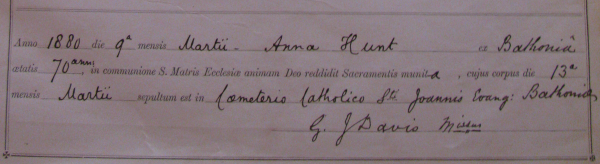 Anno 1880 die 9ª mensis Martii - Anna Hunt ex Bathoniâ
ætatis 70 ann, in communione S. Matris Ecclesiæ animam Deo reddidit Sacramentis munita, cujus corpus die 13ª
mensis Martii sepultum est in Cœmeterio Catholico Sti Joannis Evang: Bathoniæ
G. J Davis Missus